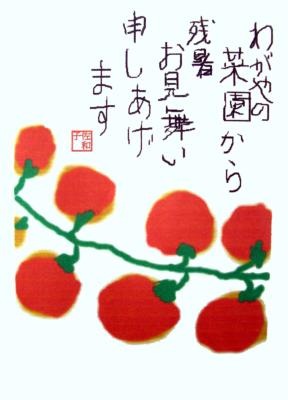 わがやの
菜園から
残暑
お見舞い
申しあげ
ます
佐和子